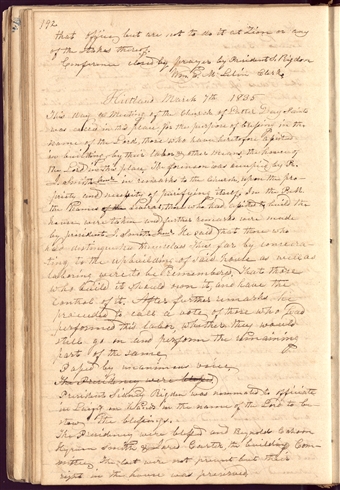 192
that office, but are not to do it at Zion or any
of the Stakes thereof.
Conference closed by prayer by President S. Rigdon
Wm E. McLellin Clerk
Kirtland March 7th 1835
This day a Meeting of the Church of Latter Day Saints
was called in this place for the purpose of blessing in the
name of the Lord, those who have heretofore assisted
in building, by their labor & other means, the house of
the Lord in this place. The forenoon was occupied by Pr.
J. Smith Jun. in remarks to the church, upon the pro-
priety and necessity of purifying itself. In the P.M.
the Names of the
house were taken and further remarks were made
by president J. Smith Jun. He said that those who
had distinguished themselves thus far by consecra-
ting to the upbuilding of said house as well as
laboring were to be remembered. That those
who build it should own it, and have the
control of it. After further remarks he
proceeded to call a vote of those who had
performed this labor, whether they would
still go on and perform the remaining
part of the same
Passed by unanimous voice
The Presidency were blessed
President Sidney Rigdon was nominated to officiate
in laying on of hands in the name of the Lord to be-
stow the blessings.
The Presidency were blessed and Reynolds Cahoon
Hyrum Smith & Jared Carter the building Com-
mittee, the last were not present but their
rights in the house was preserved